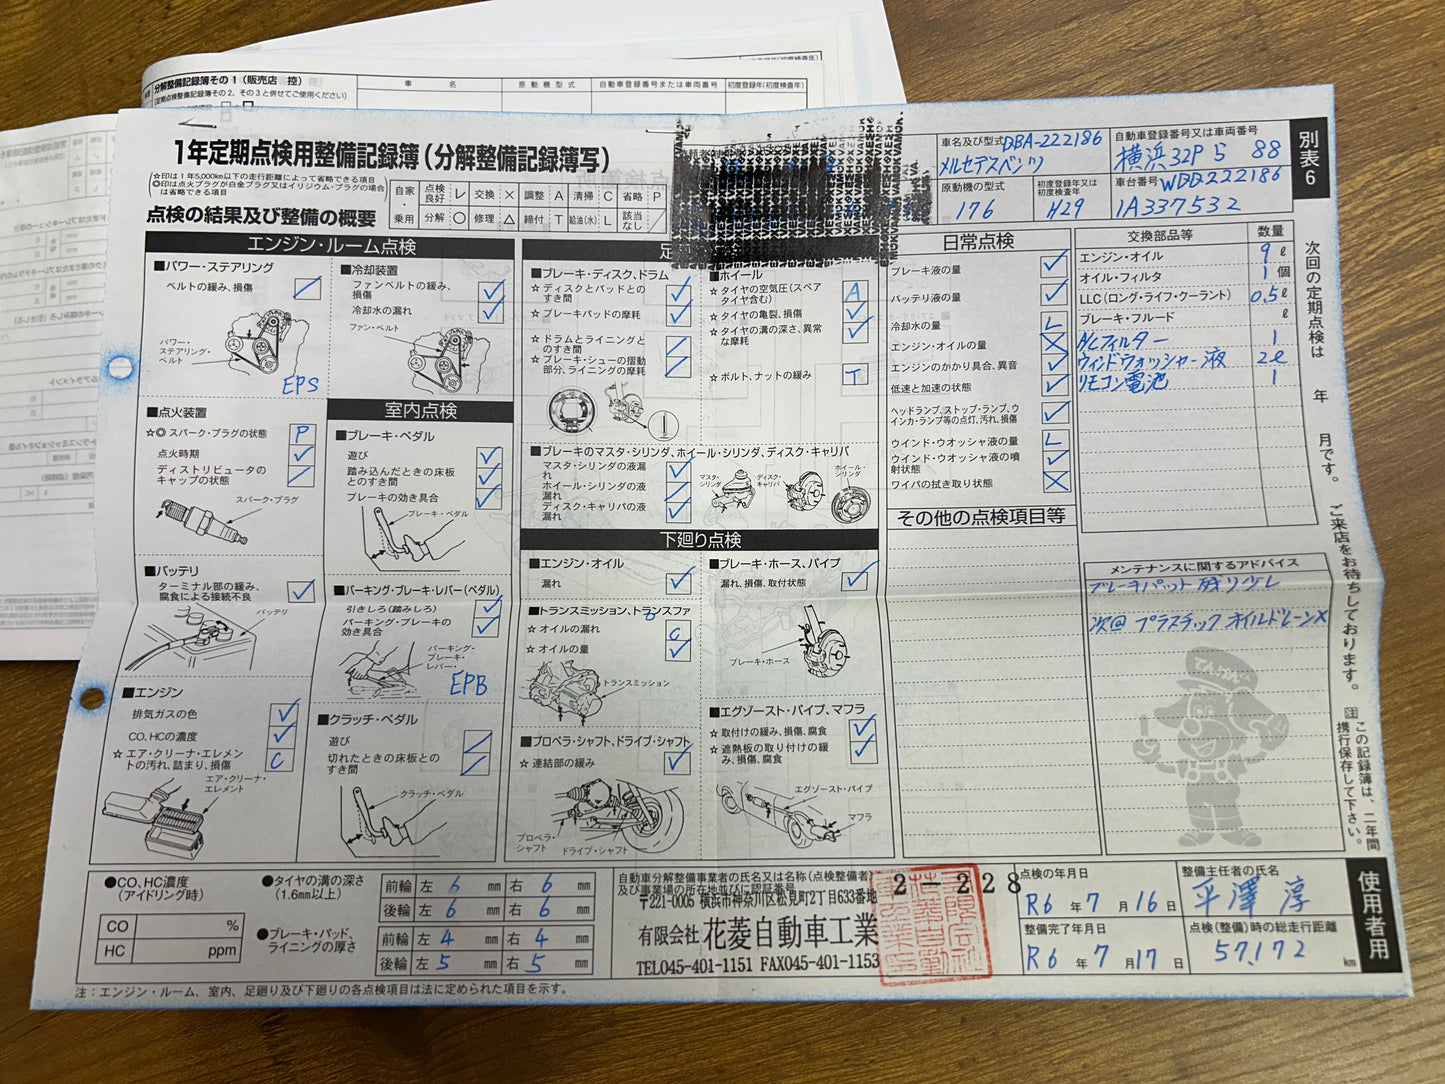 分解整備記録簿その1（販売店 控）
[定期点検整備記録簿その2、その3と併せてご使用ください]
車 名
原動機型式
自動車登録番号または車両番号
初度登録年(初度検査年)
1年定期点検用整備記録簿（分解整備記録簿写）
☆印は1年5,000km以下の走行距離によって省略できる項目
◎印は点火プラグが白金プラグ又はイリジウム・プラグの場合は省略できる項目
点検の結果及び整備の概要
自家・乗用
点検良好 レ 交換 × 調整 A 清掃 C 省略 P
分解 ○ 修理 △ 締付 T 給油(水) L 該当なし ／
車名及び型式 DBA-222186
メルセデスベンツ
自動車登録番号又は車両番号
横浜 32P 5 88
原動機の型式
176
初度登録年又は初度検査年
H29
車台番号 WDD222186
1A337532
別表6
エンジン・ルーム点検
■パワー・ステアリング
ベルトの緩み、損傷 ／
パワー・ステアリング・ベルト
EPS
■冷却装置
ファンベルトの緩み、損傷 レ
冷却水の漏れ レ
ファン・ベルト
■点火装置
☆◎ スパーク・プラグの状態 P
点火時期 レ
ディストリビュータのキャップの状態 ／
スパーク・プラグ
■バッテリ
ターミナル部の緩み、腐食による接続不良 レ
バッテリ
■エンジン
排気ガスの色 レ
CO、HCの濃度 レ
☆ エア・クリーナ・エレメントの汚れ、詰まり、損傷 C
エア・クリーナ・エレメント
室内点検
■ブレーキ・ペダル
遊び レ
踏み込んだときの床板とのすき間 レ
ブレーキの効き具合 レ
ブレーキ・ペダル
■パーキング・ブレーキ・レバー(ペダル)
引きしろ(踏みしろ) レ
パーキング・ブレーキの効き具合 レ
パーキング・ブレーキ・レバー
EPB
■クラッチ・ペダル
遊び ／
切れたときの床板とのすき間 ／
クラッチ・ペダル
足
■ブレーキ・ディスク、ドラム
☆ ディスクとパッドとのすき間 レ
☆ ブレーキパッドの摩耗 レ
☆ ドラムとライニングとのすき間 ／
☆ ブレーキ・シューの摺動部分、ライニングの摩耗 ／
■ホイール
☆ タイヤの空気圧(スペアタイヤ含む) A
☆ タイヤの亀裂、損傷 レ
☆ タイヤの溝の深さ、異常な摩耗 レ
☆ ボルト、ナットの緩み T
■ブレーキのマスタ・シリンダ、ホイール・シリンダ、ディスク・キャリパ
マスタ・シリンダの液漏れ レ
ホイール・シリンダの液漏れ レ
ディスク・キャリパの液漏れ レ
マスタ・シリンダ
ディスク・キャリパ
ホイール・シリンダ
下廻り点検
■エンジン・オイル
漏れ レ
■トランスミッション、トランスファ
☆ オイルの漏れ C
☆ オイルの量 レ
トランスミッション
■プロペラ・シャフト、ドライブ・シャフト
☆ 連結部の緩み レ
プロペラ・シャフト
ドライブ・シャフト
■ブレーキ・ホース、パイプ
漏れ、損傷、取付状態 レ
ブレーキ・ホース
■エグゾースト・パイプ、マフラ
☆ 取付けの緩み、損傷、腐食 レ
☆ 遮熱板の取り付けの緩み、損傷、腐食 レ
エグゾースト・パイプ
マフラ
日常点検
ブレーキ液の量 レ
バッテリ液の量 レ
冷却水の量 L
エンジン・オイルの量 ×
エンジンのかかり具合、異音 レ
低速と加速の状態 レ
ヘッドランプ、ストップ・ランプ、ウインカ・ランプ等の点灯、汚れ、損傷 レ
ウインド・ウオッシャ液の量 L
ウインド・ウオッシャ液の噴射状態 レ
ワイパの拭き取り状態 ×
その他の点検項目等
交換部品等 数量
エンジン・オイル 9 ℓ
オイル・フィルタ 1 個
LLC(ロング・ライフ・クーラント) 0.5 ℓ
ブレーキ・フルード ℓ
A/Cフィルター 1
ウィンドウォッシャー液 2ℓ
リモコン電池 1
メンテナンスに関するアドバイス
ブレーキパット残り少し
次回 プラスチック オイルドレーンX
次回の定期点検は 年 月です。 ご来店をお待ちしております。
注 この記録簿は、二年間携行保存して下さい。
使用者用
●CO、HC濃度(アイドリング時)
CO %
HC ppm
●タイヤの溝の深さ(1.6mm以上)
前輪 左 6 mm 右 6 mm
後輪 左 6 mm 右 6 mm
●ブレーキ・パッド、ライニングの厚さ
前輪 左 4 mm 右 4 mm
後輪 左 5 mm 右 5 mm
自動車分解整備事業者の氏名又は名称(点検整備者)及び事業場の所在地並びに認証番号
2-228
〒221-0005 横浜市神奈川区松見町2丁目633番地
有限会社 花菱自動車工業
TEL045-401-1151 FAX045-401-1153
点検の年月日
R6 年 7 月 16 日
整備完了年月日
R6 年 7 月 17 日
整備主任者の氏名
平澤 淳
点検(整備)時の総走行距離
57,172 km
注：エンジン・ルーム、室内、足廻り及び下廻りの各点検項目は法に定められた項目を示す。